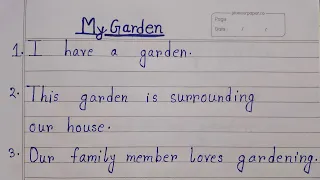 My Garden
1. I have a garden.
2. This garden is surrounding
our house.
3. Our family member loves gardening.